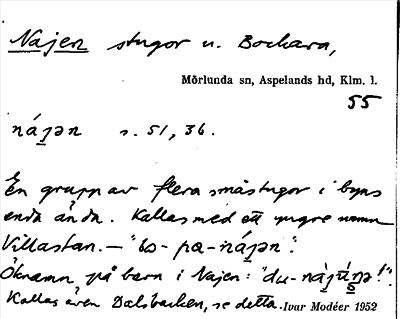 Najen stugor u. Bockara,
Mörlunda sn, Aspelands hd, Klm. l.
55
nájən s. 51, 36.
En grupp av flera småstugor i byns
enda ända. Kallas med ett yngre namn
Villastan. — "bo - pa - nájən".
Öknamn på barn i Najen: "du - nàjúŋə!".
Kallas även Dalsbacken, se detta. Ivar Modéer 1952